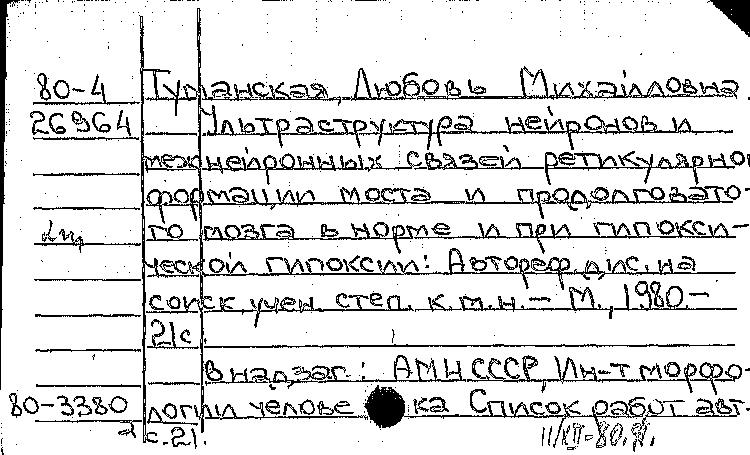 80-4 Туманская, Любовь Михайловна.
26964 Ультраструктура нейронов и
межнейронных связей ретикулярной
формации моста и продолговато-
го мозга в норме и при гипокси-
ческой гипоксии: Автореф. дис. на
соиск. учен. степ. к.м.н. - М., 1980.-
21с.
В надзаг.: АМН СССР, Ин-т морфо-
80-3380 логии человека Список работ авт.
с.21.